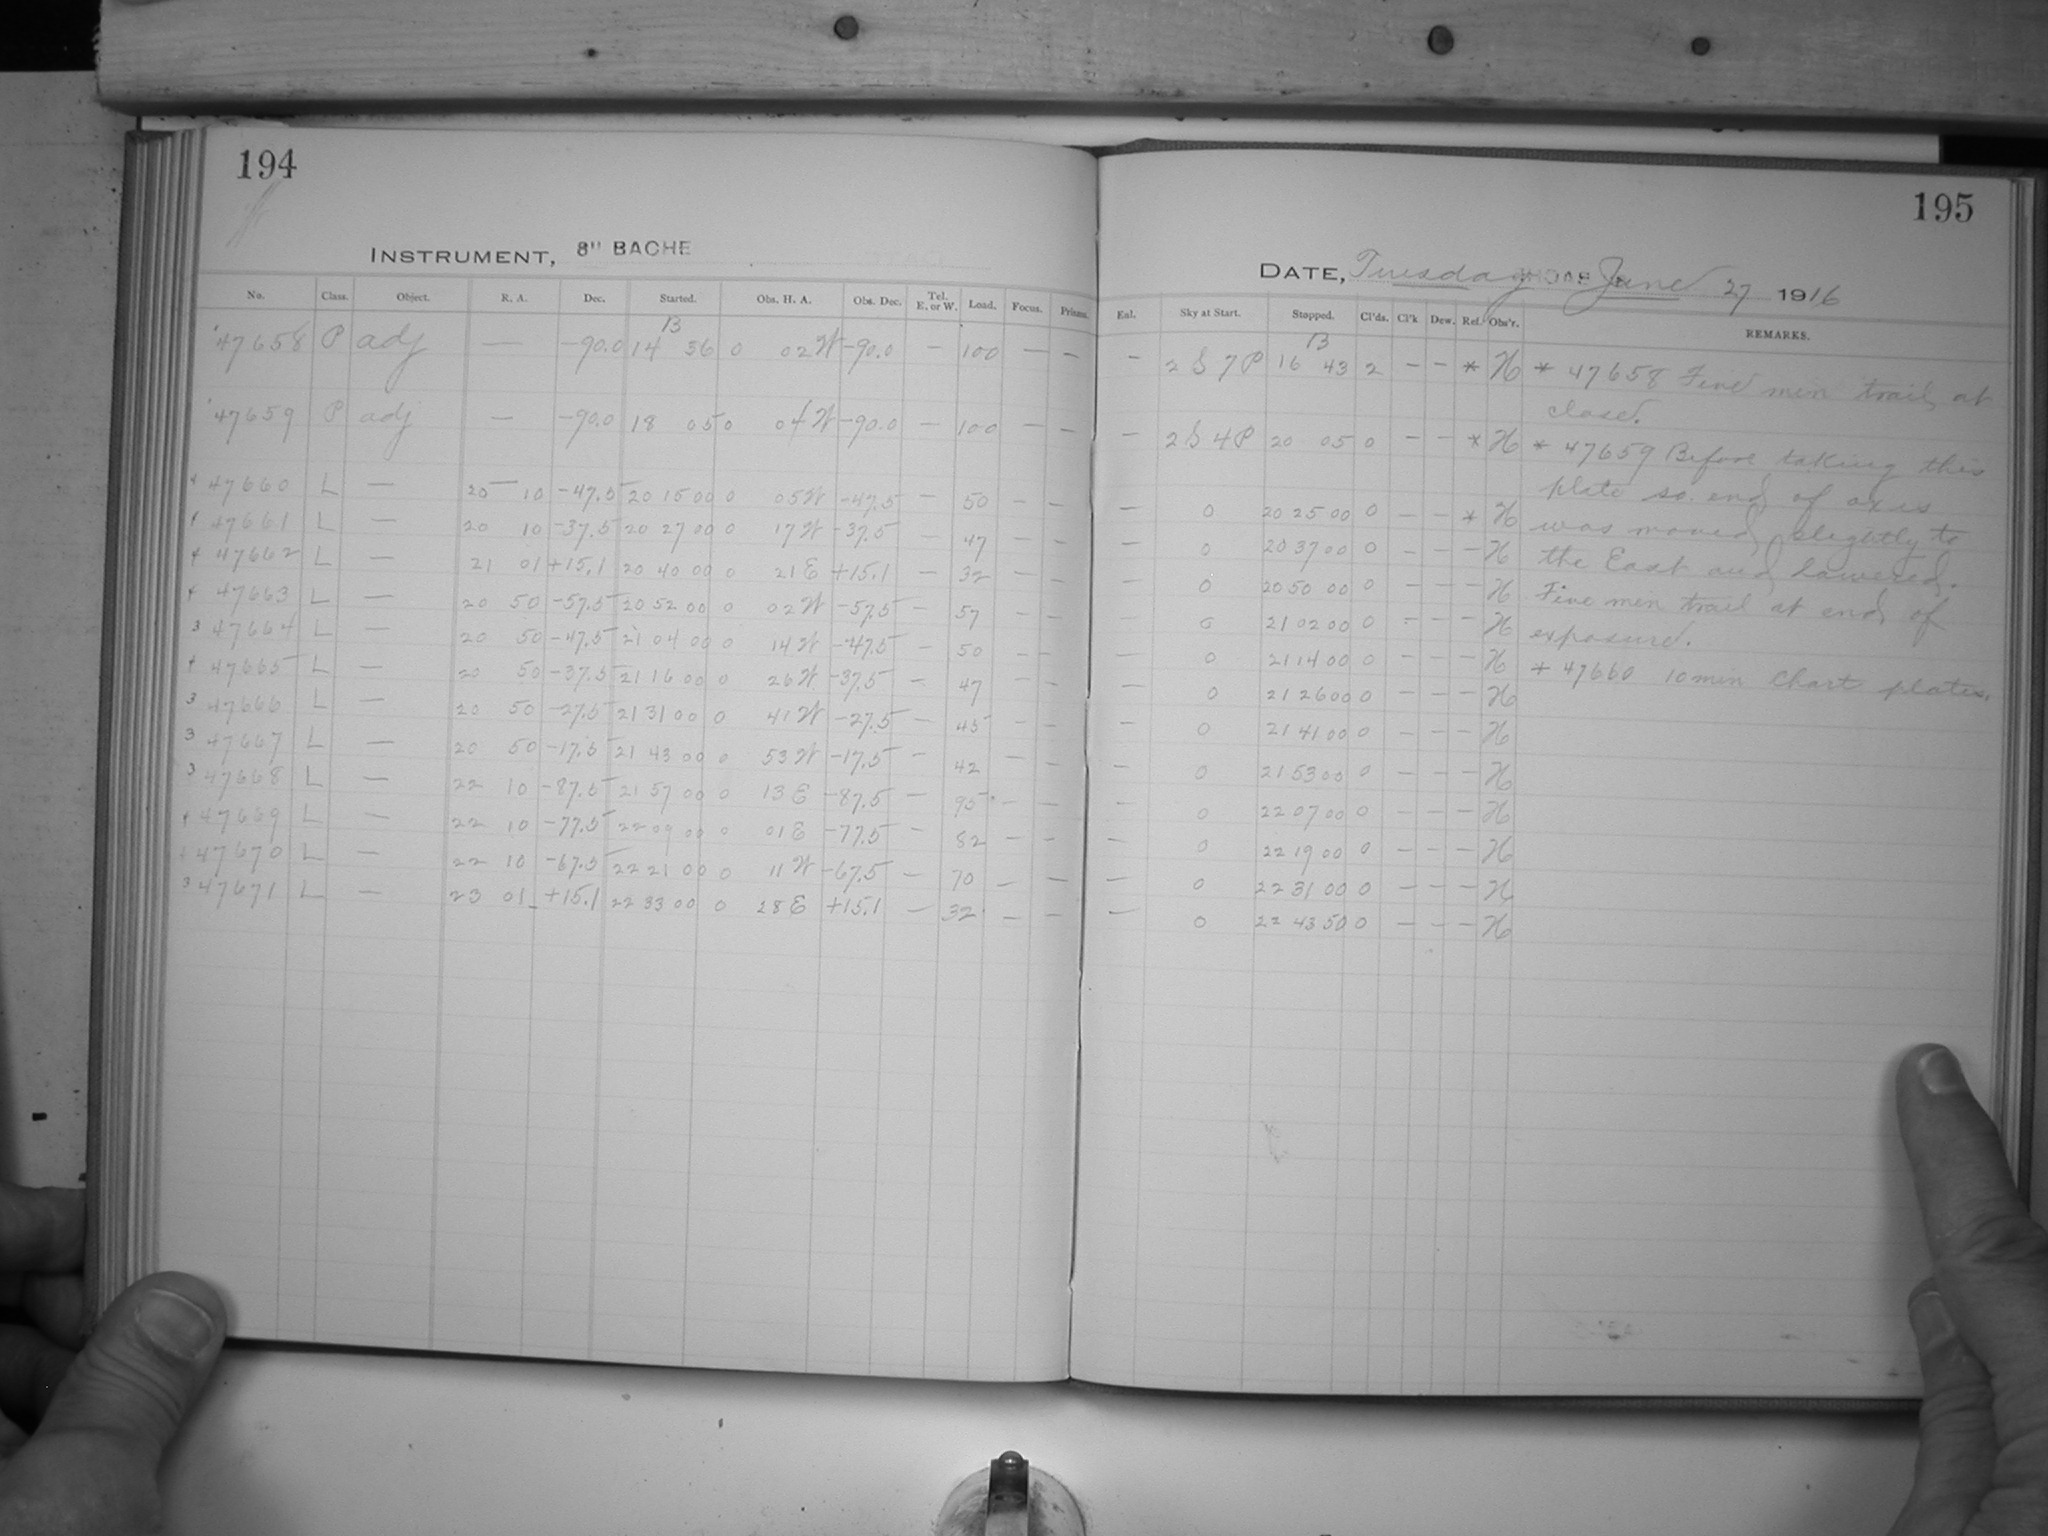 194
INSTRUMENT, 8" BACHE
No. Class. Object. R. A. Dec. Started. Obs. H. A. Obs. Dec. Tel. E. or W. Load. Focus. Prisms.
B
47658 P adj — -90.0 14 56 0 02 W -90.0 — 100 — —
47659 P adj — -90.0 18 05 0 04 W -90.0 — 100 — —
47660 L — 20 10 -47.5 20 15 00 0 05 W -47.5 — 50 — —
47661 L — 20 10 -37.5 20 27 00 0 17 W -37.5 — 47 — —
47662 L — 21 01 +15.1 20 40 00 0 21 E +15.1 — 32 — —
47663 L — 20 50 -57.5 20 52 00 0 02 W -57.5 — 57 — —
3 47664 L — 20 50 -47.5 21 04 00 0 14 W -47.5 — 50 — —
47665 L — 20 50 -37.5 21 16 00 0 26 W -37.5 — 47 — —
3 47666 L — 20 50 -27.5 21 31 00 0 41 W -27.5 — 45 — —
3 47667 L — 20 50 -17.5 21 43 00 0 53 W -17.5 — 42 — —
3 47668 L — 22 10 -87.5 21 57 00 0 13 E -87.5 — 95 — —
47669 L — 22 10 -77.5 22 09 00 0 01 E -77.5 — 82 — —
47670 L — 22 10 -67.5 22 21 00 0 11 W -67.5 — 70 — —
3 47671 L — 23 01 +15.1 22 33 00 0 28 E +15.1 — 32 — —
195
DATE, Tuesday June 27 1916
Enl. Sky at Start. Stopped. Cl'ds. Cl'k Dew. Ref. Obs'r. REMARKS.
B
— 2 S 7 P 16 43 2 — — * H * 47658 Five min trail at
close.
— 2 S 4 P 20 05 0 — — * H * 47659 Before taking this
plate so. end of axis
— 0 20 25 00 0 — — * H was moved slightly to
— 0 20 37 00 0 — — — H the East and lowered.
— 0 20 50 00 0 — — — H Five min trail at end of
— 0 21 02 00 0 — — — H exposure.
— 0 21 14 00 0 — — — H * 47660 10 min Chart plates.
— 0 21 26 00 0 — — — H
— 0 21 41 00 0 — — — H
— 0 21 53 00 0 — — — H
— 0 22 07 00 0 — — — H
— 0 22 19 00 0 — — — H
— 0 22 31 00 0 — — — H
— 0 22 43 50 0 — — — H